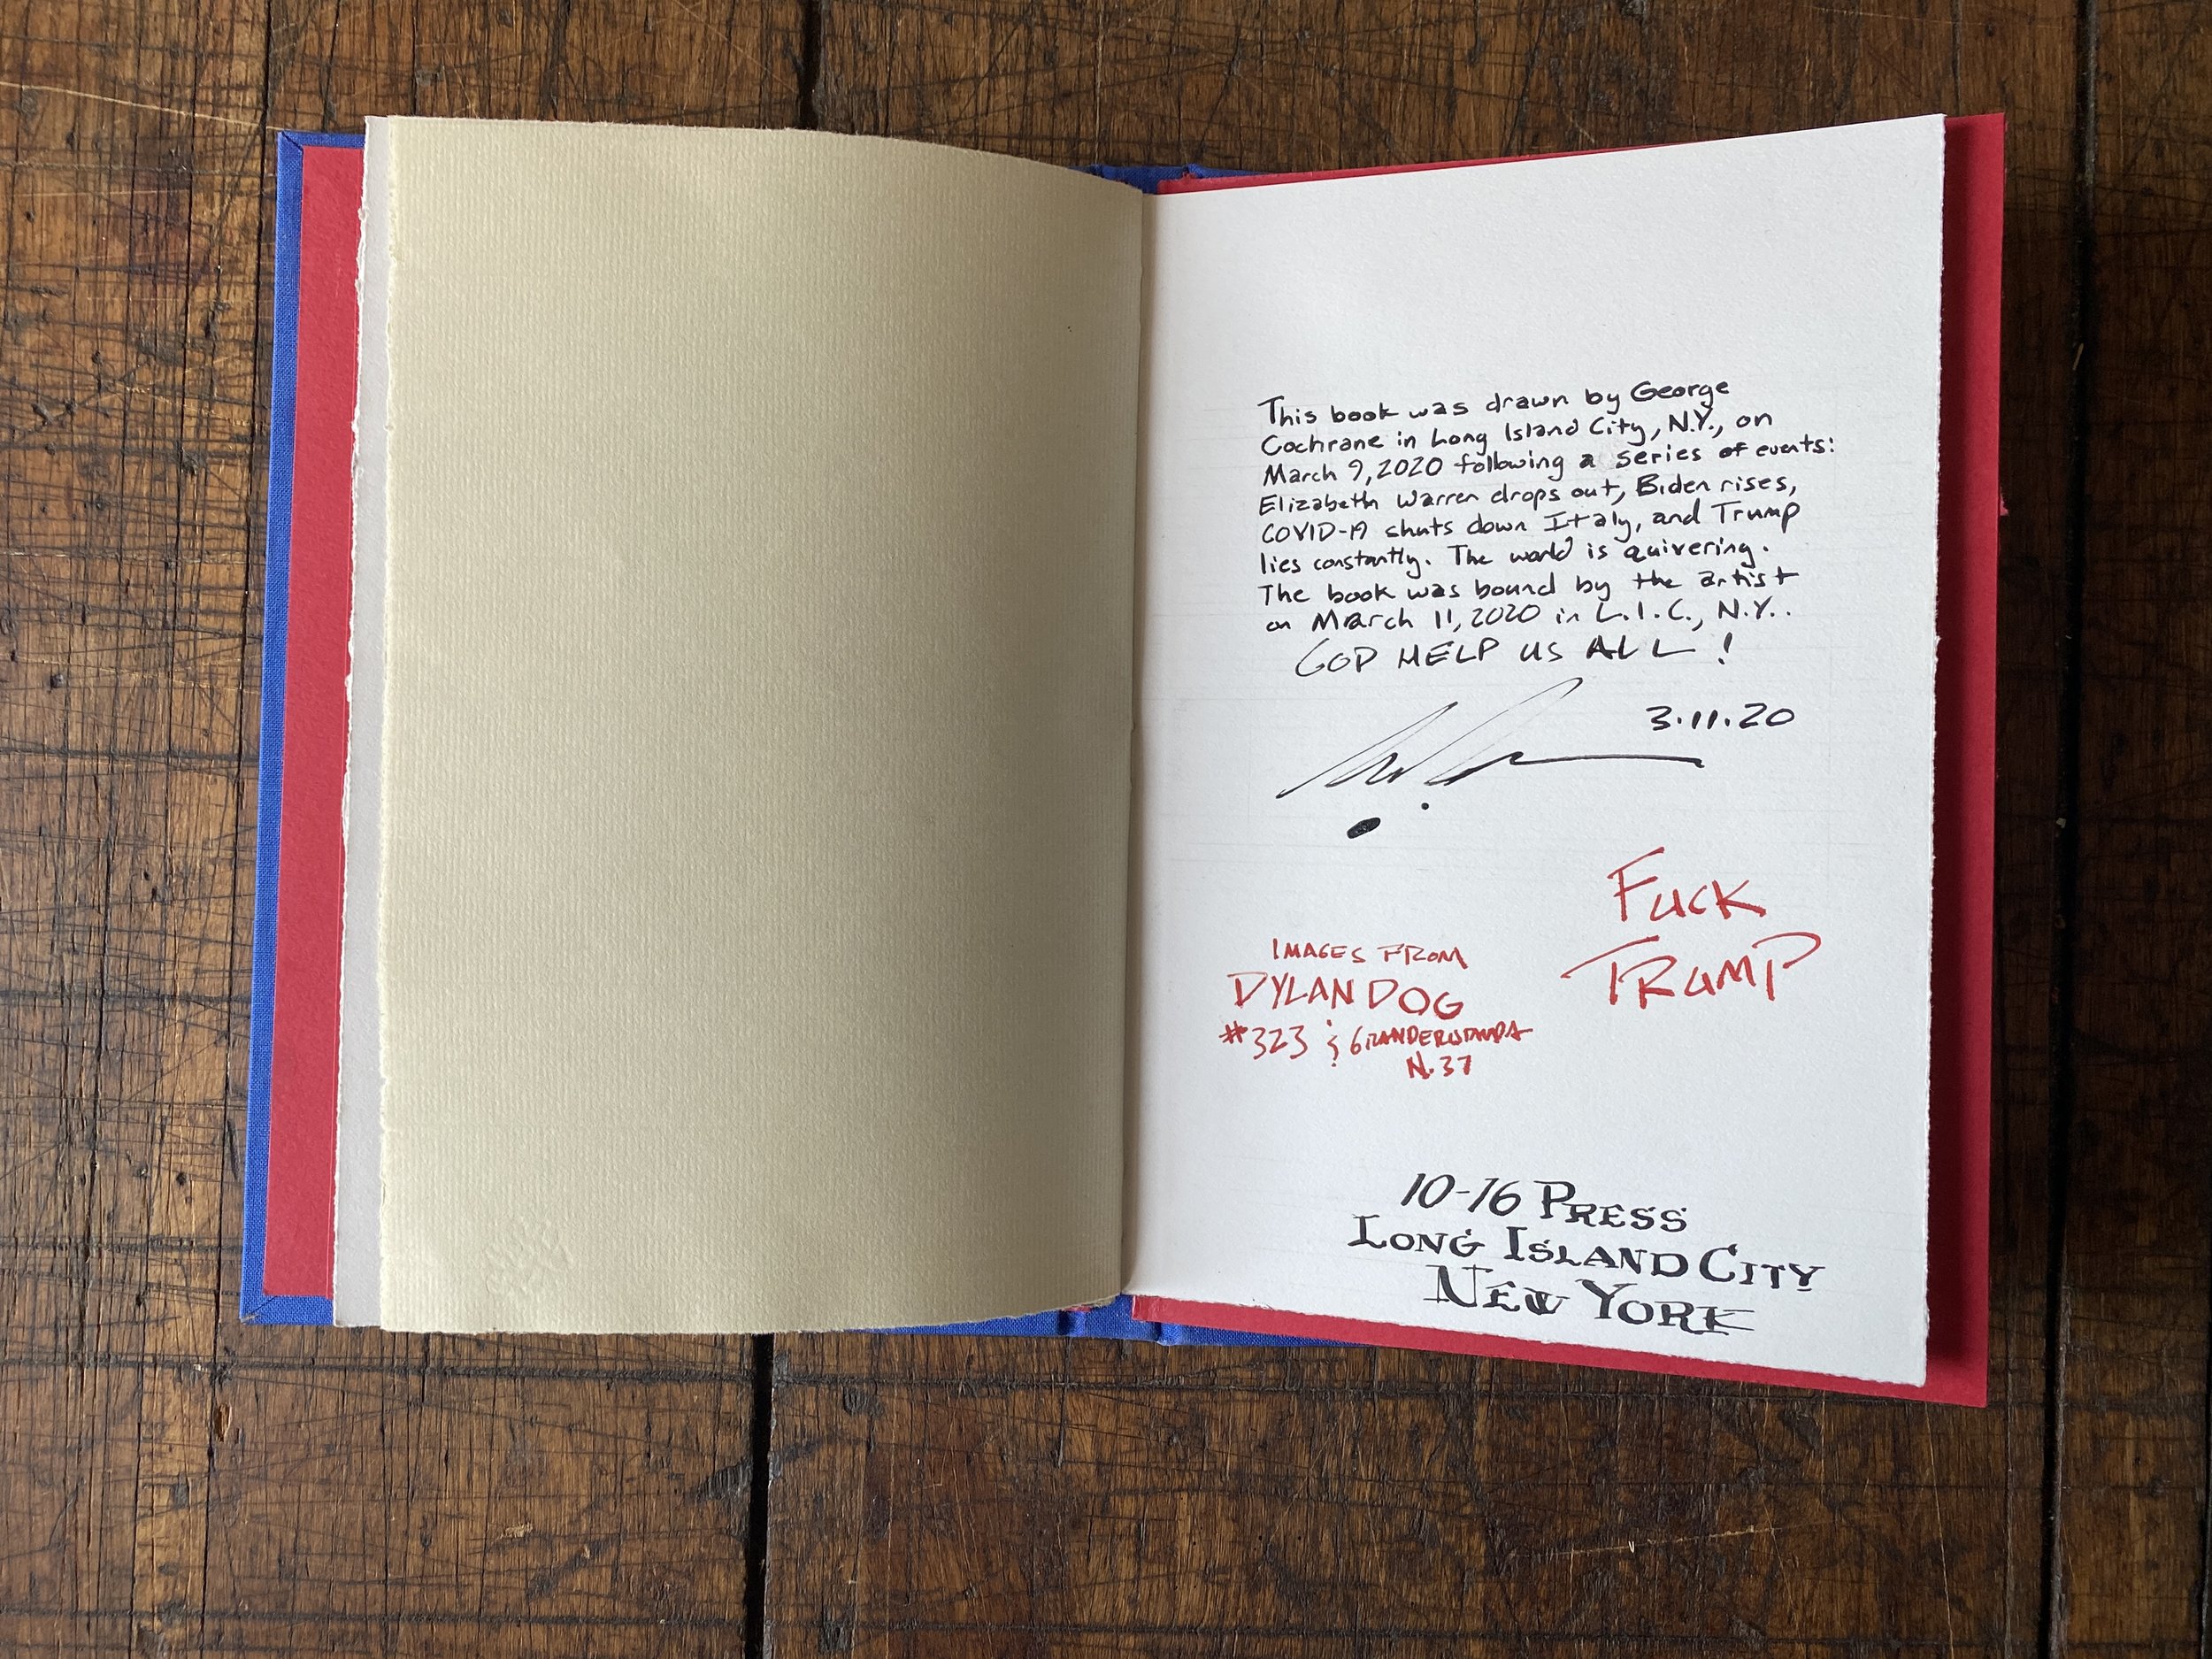 This book was drawn by George
Cochrane in Long Island City, N.Y., on
March 9, 2020 following a series of events:
Elizabeth Warren drops out, Biden rises,
COVID-19 shuts down Italy, and Trump
lies constantly. The world is quivering.
The book was bound by the artist
on March 11, 2020 in L.I.C., N.Y..
GOD HELP US ALL!
3.11.20
FUCK
TRUMP
IMAGES FROM
DYLAN DOG
#323 &
N.37
10-16 PRESS
LONG ISLAND CITY
NEW YORK